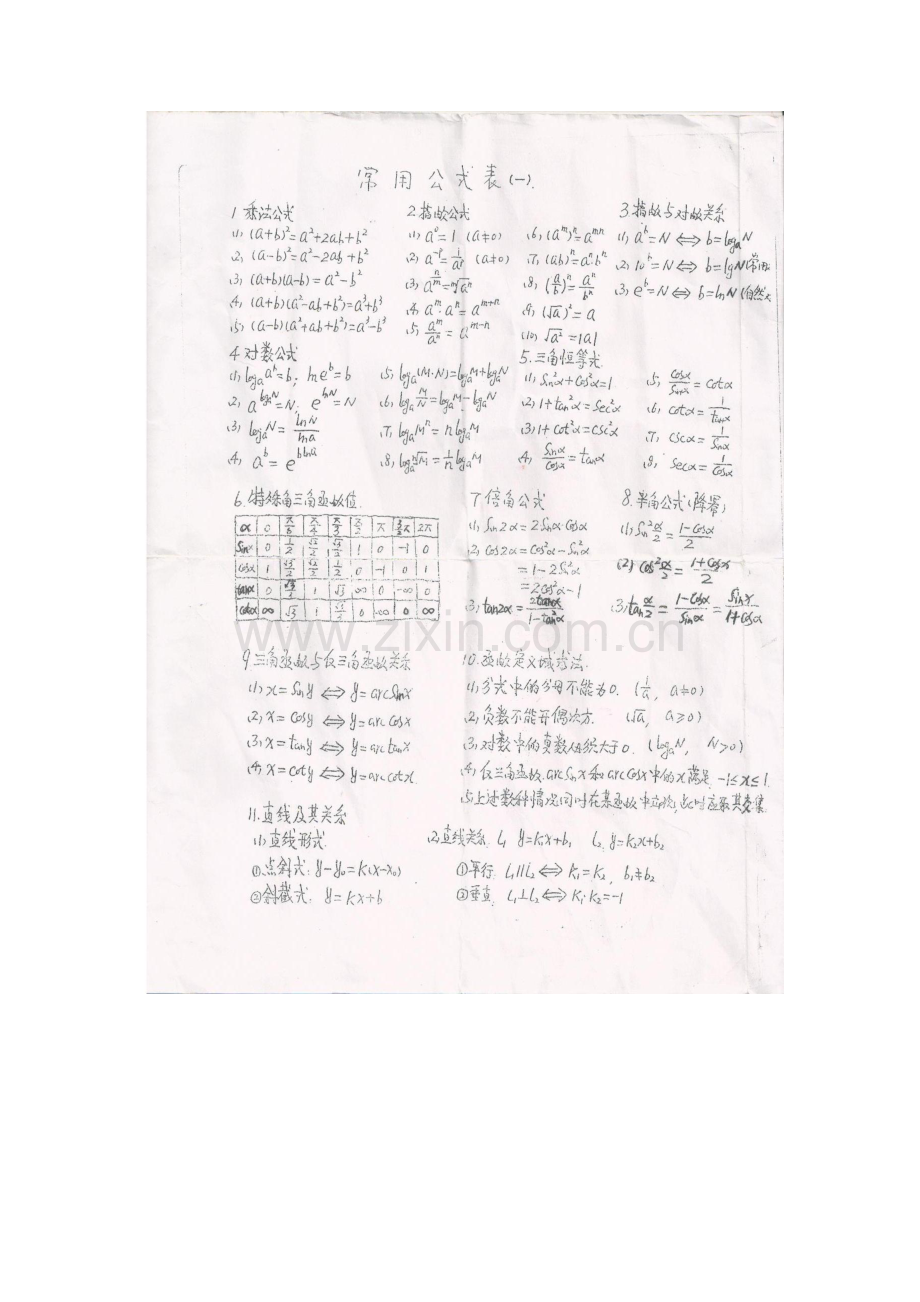 常用公式表(一).
1 乘法公式
(1) (a+b)²=a²+2ab+b²
(2) (a-b)²=a²-2ab+b²
(3) (a+b)(a-b)=a²-b²
(4) (a+b)(a²-ab+b²)=a³+b³
(5) (a-b)(a²+ab+b²)=a³-b³
2 指数公式
(1) a⁰=1 (a≠0)
(2) a⁻ᵖ=1/aᵖ (a≠0)
(4) aᵐ·aⁿ=aᵐ⁺ⁿ
(5) aᵐ/aⁿ=aᵐ⁻ⁿ
(6) (aᵐ)ⁿ=aᵐⁿ
(7) (ab)ⁿ=aⁿbⁿ
(8) (a/b)ⁿ=aⁿ/bⁿ
(9) (√a)²=a
(10) √a²=|a|
3 指数与对数关系
(1) aᵇ=N⟺b=logₐN
(2) 10ᵇ=N⟺b=lgN(常用
(3) eᵇ=N⟺b=lnN(自然
4 对数公式
(1) logₐaᵇ=b; lneᵇ=b
(2) a^(logₐN)=N; e^(lnN)=N
(3) logₐN=lnN/lna
(4) aᵇ=e^(blna)
(5) logₐ(M·N)=logₐM+logₐN
(6) logₐ(M/N)=logₐM-logₐN
(7) logₐMⁿ=nlogₐM
(8) logₐⁿ√M=1/n logₐM
5. 三角恒等式
(1) Sin²α+Cos²α=1
(2) 1+tan²α=Sec²α
(3) 1+cot²α=csc²α
(4) Sinα/Cosα=tanα
(5) Cosα/Sinα=cotα
(6) cotα=1/tanα
(7) cscα=1/Sinα
(8) Secα=1/Cosα
6. 特殊角三角函数值
α 0 π/6 π/4 π/3 π/2 π 3/2π 2π
Sinα 0 1/2 √2/2 √3/2 1 0 -1 0
cosα 1 √3/2 √2/2 1/2 0 -1 0 1
tanα 0 √3/3 1 √3 ∞ 0 -∞ 0
cotα ∞ √3 1 √3/3 0 -∞ 0 ∞
7 倍角公式
(1) Sin2α=2Sinα·Cosα
(2) Cos2α=Cos²α-Sin²α
=1-2Sin²α
=2cos²α-1
(3) tan2α=2tanα/1-tan²α
8. 半角公式(降幂)
(1) Sin²α/2=1-Cosα/2
(2) Cos²α/2=1+Cosα/2
(3) tanα/2=1-Cosα/Sinα=Sinα/1+Cosα
www.zixin.com.cn
9 三角函数与反三角函数关系
(1) x=Siny⟺y=arcSinx
(2) x=Cosy⟺y=arcCosx
(3) x=tany⟺y=arctanx
(4) x=coty⟺y=arccotx
10. 函数定义域求法.
(1) 分式中的分母不能为0. (1/a, a≠0)
(2) 负数不能开偶次方. (√a, a≥0)
(3) 对数中的真数必须大于0. (logₐN, N>0)
(4) 反三角函数.arcSinx和arcCosx中的x满足. -1≤x≤1
(5) 上述数种情况同时在某函数中出现,此时应求其交集
11. 直线及其关系
(1) 直线形式
①点斜式: y-y₀=K(x-x₀)
②斜截式: y=Kx+b
(2) 直线关系. L₁ y=K₁x+b₁ L₂ y=K₂x+b₂
①平行: L₁∥L₂⟺K₁=K₂, b₁≠b₂
②垂直: L₁⊥L₂⟺K₁·K₂=-1